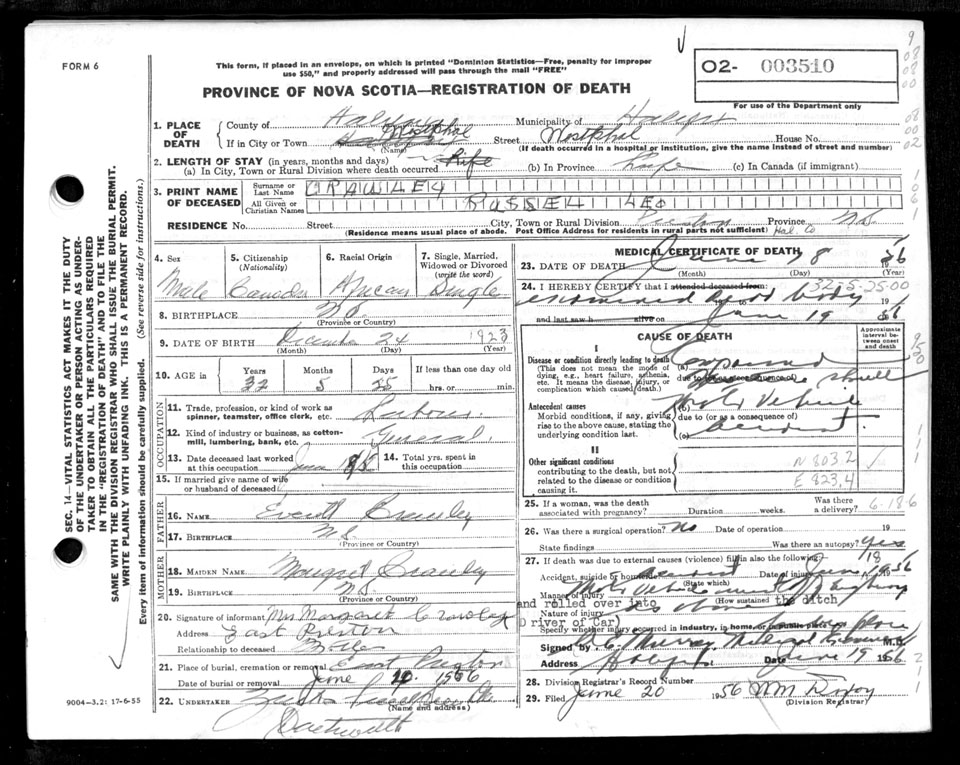 FORM 6
This form, if placed in an envelope, on which is printed "Dominion Statistics—Free, penalty for improper
use $50," and properly addressed will pass through the mail "FREE"
PROVINCE OF NOVA SCOTIA—REGISTRATION OF DEATH
O2- 003510
For use of the Department only
1. PLACE OF DEATH
County of Halifax Municipality of Halifax
If in City or Town Westphal Street Westphal House No.
(Name) (If death occurred in a hospital or institution, give the name instead of street and number)
2. LENGTH OF STAY (in years, months and days)
(a) In City, Town or Rural Division where death occurred Life (b) In Province Life (c) In Canada (if immigrant)
3. PRINT NAME OF DECEASED
Surname or Last Name CRAWLEY
All Given or Christian Names RUSSELL LEO
RESIDENCE No. Street City, Town or Rural Division Preston Province N.S.
(Residence means usual place of abode. Post Office Address for residents in rural parts not sufficient) Hal. Co
4. Sex Male
5. Citizenship (Nationality) Canadian
6. Racial Origin African
7. Single, Married, Widowed or Divorced (write the word) Single
8. BIRTHPLACE N.S.
(Province or Country)
9. DATE OF BIRTH December 24 1923
(Month) (Day) (Year)
10. AGE in Years Months Days If less than one day old
32 5 25 hrs. or min.
OCCUPATION
11. Trade, profession, or kind of work as spinner, teamster, office clerk, etc. Laborer
12. Kind of industry or business, as cotton-mill, lumbering, bank, etc. General
13. Date deceased last worked at this occupation June
14. Total yrs. spent in this occupation
15. If married give name of wife or husband of deceased
FATHER
16. NAME Everett Crawley
17. BIRTHPLACE N.S.
(Province or Country)
MOTHER
18. MAIDEN NAME Margaret Crawley
19. BIRTHPLACE N.S.
(Province or Country)
20. Signature of informant Mrs Margaret Crawley
Address East Preston
Relationship to deceased Mother
21. Place of burial, cremation or removal East Preston
Date of burial or removal June 1956
22. UNDERTAKER
(Name and address)
Dartmouth
9004-3.2: 17-6-55
MEDICAL CERTIFICATE OF DEATH
23. DATE OF DEATH June 18 1956
(Month) (Day) (Year)
24. I HEREBY CERTIFY that I attended deceased from: 32-5-25-00
examined dead body 19
and last saw h alive on June 19 56
CAUSE OF DEATH
Approximate interval between onset and death
I
Disease or condition directly leading to death
(This does not mean the mode of dying, e.g., heart failure, asthenia, etc. It means the disease, injury, or complication which caused death.)
(a) Compound
due to (or as a consequence of) skull
Antecedent causes
Morbid conditions, if any, giving rise to the above cause, stating the underlying condition last.
(b) Motor Vehicle
due to (or as a consequence of)
(c) accident
II
Other significant conditions contributing to the death, but not related to the disease or condition causing it.
N 803.2
E 823.4
25. If a woman, was the death associated with pregnancy? Duration weeks. Was there a delivery? 6-18-6
26. Was there a surgical operation? No Date of operation 19
State findings Was there an autopsy? Yes
27. If death was due to external causes (violence) fill in also the following:
Accident, suicide or homicide accident Date of injury June 18 1956
(State which)
Manner of injury Motor Vehicle went off highway
and rolled over into the ditch
(How sustained)
Nature of injury
(Driver of Car)
Specify whether injury occurred in industry, in home, or in public place
Signed by M.D.
Address Halifax Date June 19 1956
28. Division Registrar's Record Number
29. Filed June 20 1956
(Division Registrar)
SEC. 14—VITAL STATISTICS ACT MAKES IT THE DUTY
OF THE UNDERTAKER OR PERSON ACTING AS UNDER-
TAKER TO OBTAIN ALL THE PARTICULARS REQUIRED
IN THE "REGISTRATION OF DEATH" AND TO FILE THE
SAME WITH THE DIVISION REGISTRAR WHO SHALL ISSUE THE BURIAL PERMIT.
WRITE PLAINLY WITH UNFADING INK. THIS IS A PERMANENT RECORD.
Every item of information should be carefully supplied. (See reverse side for instructions.)